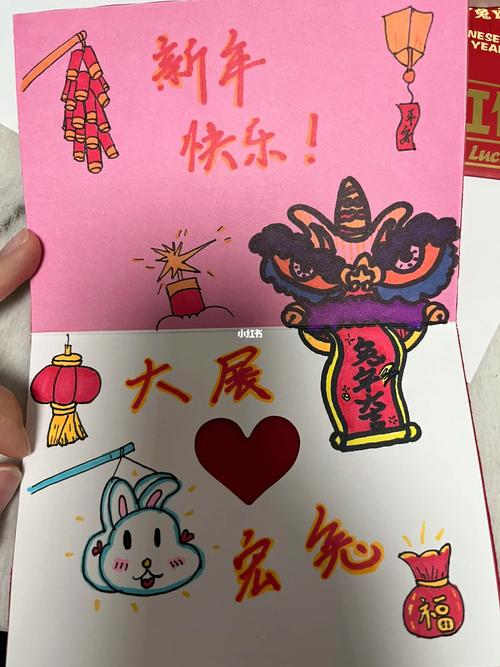 新年
快乐！
平安
兔年大吉
小红书
大展
宏兔
福
兔Y
NESE
YEA
Luc